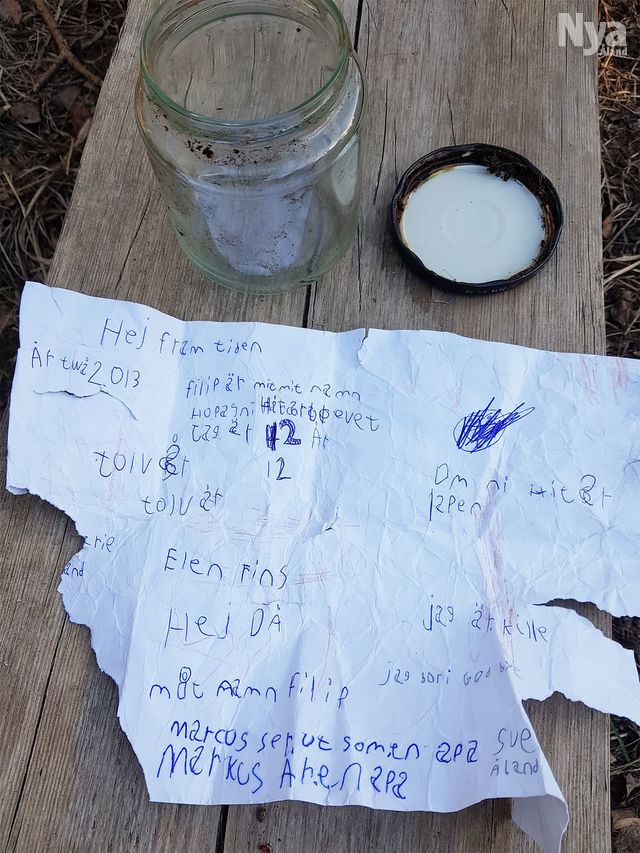 Nya
Åland
Hej fram tiden
År två 2013
filip är mit mit namn
Hopas ni Hitar brevet
Jag är 12 År
tolv år
12
tolv år
Om ni Hitar
Elen Fins
Hej DÅ
jag är Kille
mit namn filip
jag bori
marcus ser ut somen apa
sve
Markus Är en apa
Åland